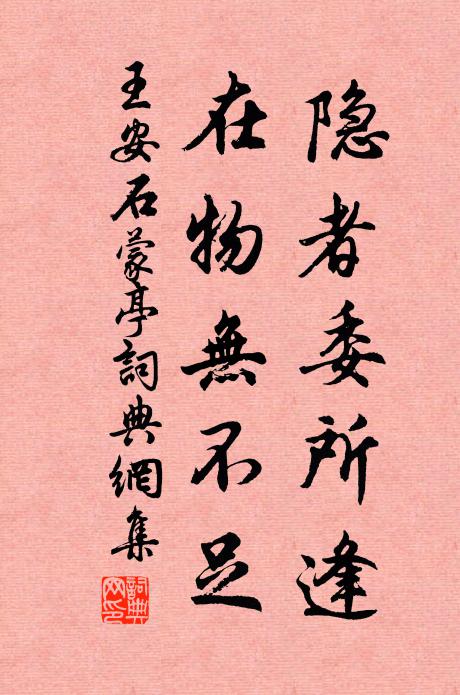 隐者委所逢
在物無不足
王安石蒙亭詞典網集
詞典網印